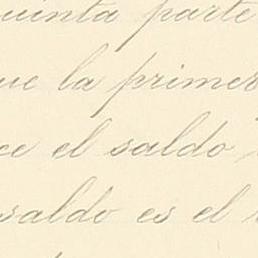 quinta parte
que la primer
ce el saldo
saldo es el